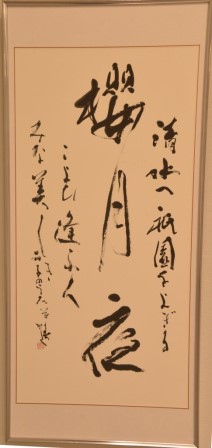 清水へ祇園をよぎる
櫻月夜
こよひ逢ふ人
みな美しき